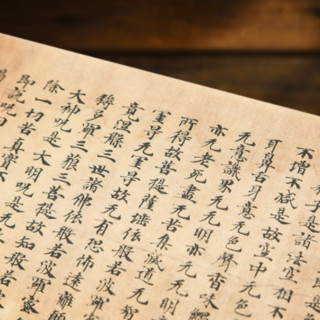 子是諸法空相不
不增不減是故空中无色
耳鼻舌身意无色聲香味觸
无意識界无无明亦无无明
亦无老死盡无苦集滅道无
所得故菩提薩埵依般若波羅
罣导无罣导故无有恐怖遠離顛
竟涅槃三世諸佛依般若波羅蜜
耨多羅三藐三菩提故知般若波羅蜜
大神呪是大明呪是无
除一切苦真實不
即說呪